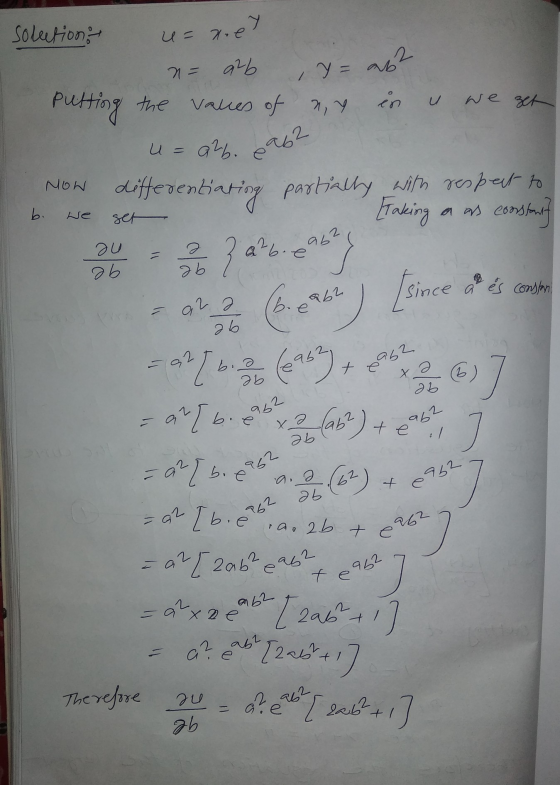 Solution:→ u = x.e^y
x = a²b , y = ab²
Putting the values of x, y in u we get
u = a²b. e^{ab²}
NOW differentiating partially with respect to
b. we get — [Taking a as constant]
∂u/∂b = ∂/∂b {a²b. e^{ab²}}
= a² ∂/∂b (b. e^{ab²}) [since a² is constan
= a² [b. ∂/∂b (e^{ab²}) + e^{ab²} × ∂/∂b (b)]
= a² [b. e^{ab²} × ∂/∂b (ab²) + e^{ab²} .1]
= a² [b. e^{ab²} a. ∂/∂b. (b²) + e^{ab²}]
= a² [b. e^{ab²} .a. 2b + e^{ab²}]
= a² [2ab² e^{ab²} + e^{ab²}]
= a² × e^{ab²} [2ab² + 1]
= a². e^{ab²} [2ab² + 1]
Therefore ∂u/∂b = a². e^{ab²} [2ab² + 1]